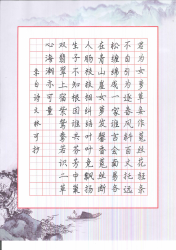 君为女萝草妾作菟丝花轻条
不自引为逐春风斜百丈托远
松缠绵成一家谁言会面易各
在青山崖女萝发馨香菟丝断
人肠枝枝相纠结叶叶竞飘扬
生子不知根因谁共芬芳中巢
双翡翠上宿紫鸳鸯若识二草
心海潮亦可量
李白诗